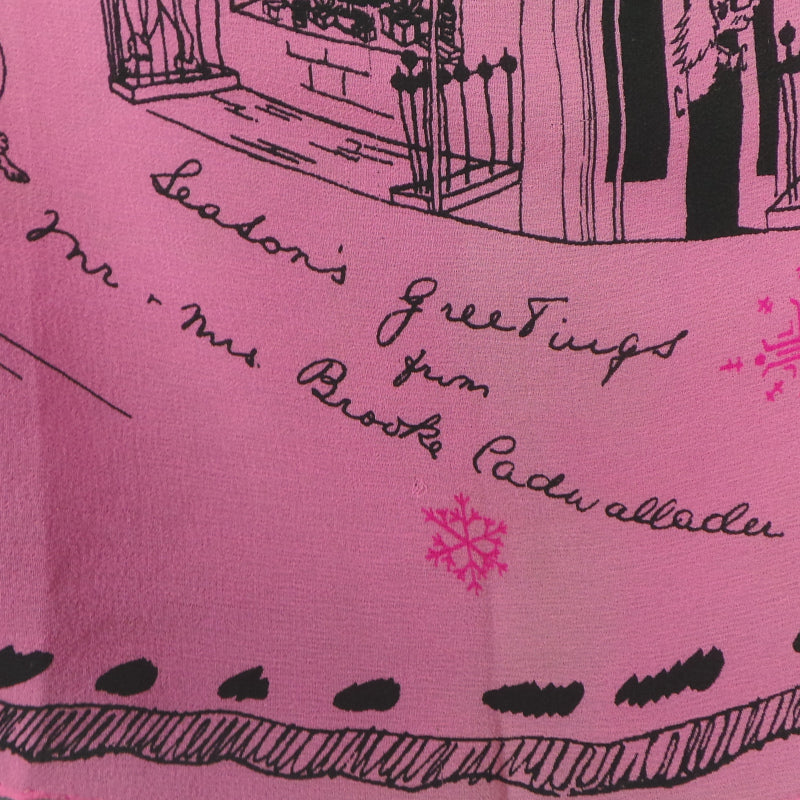 Season's Greetings
from
Mr - Mrs. Brooke Cadwallader